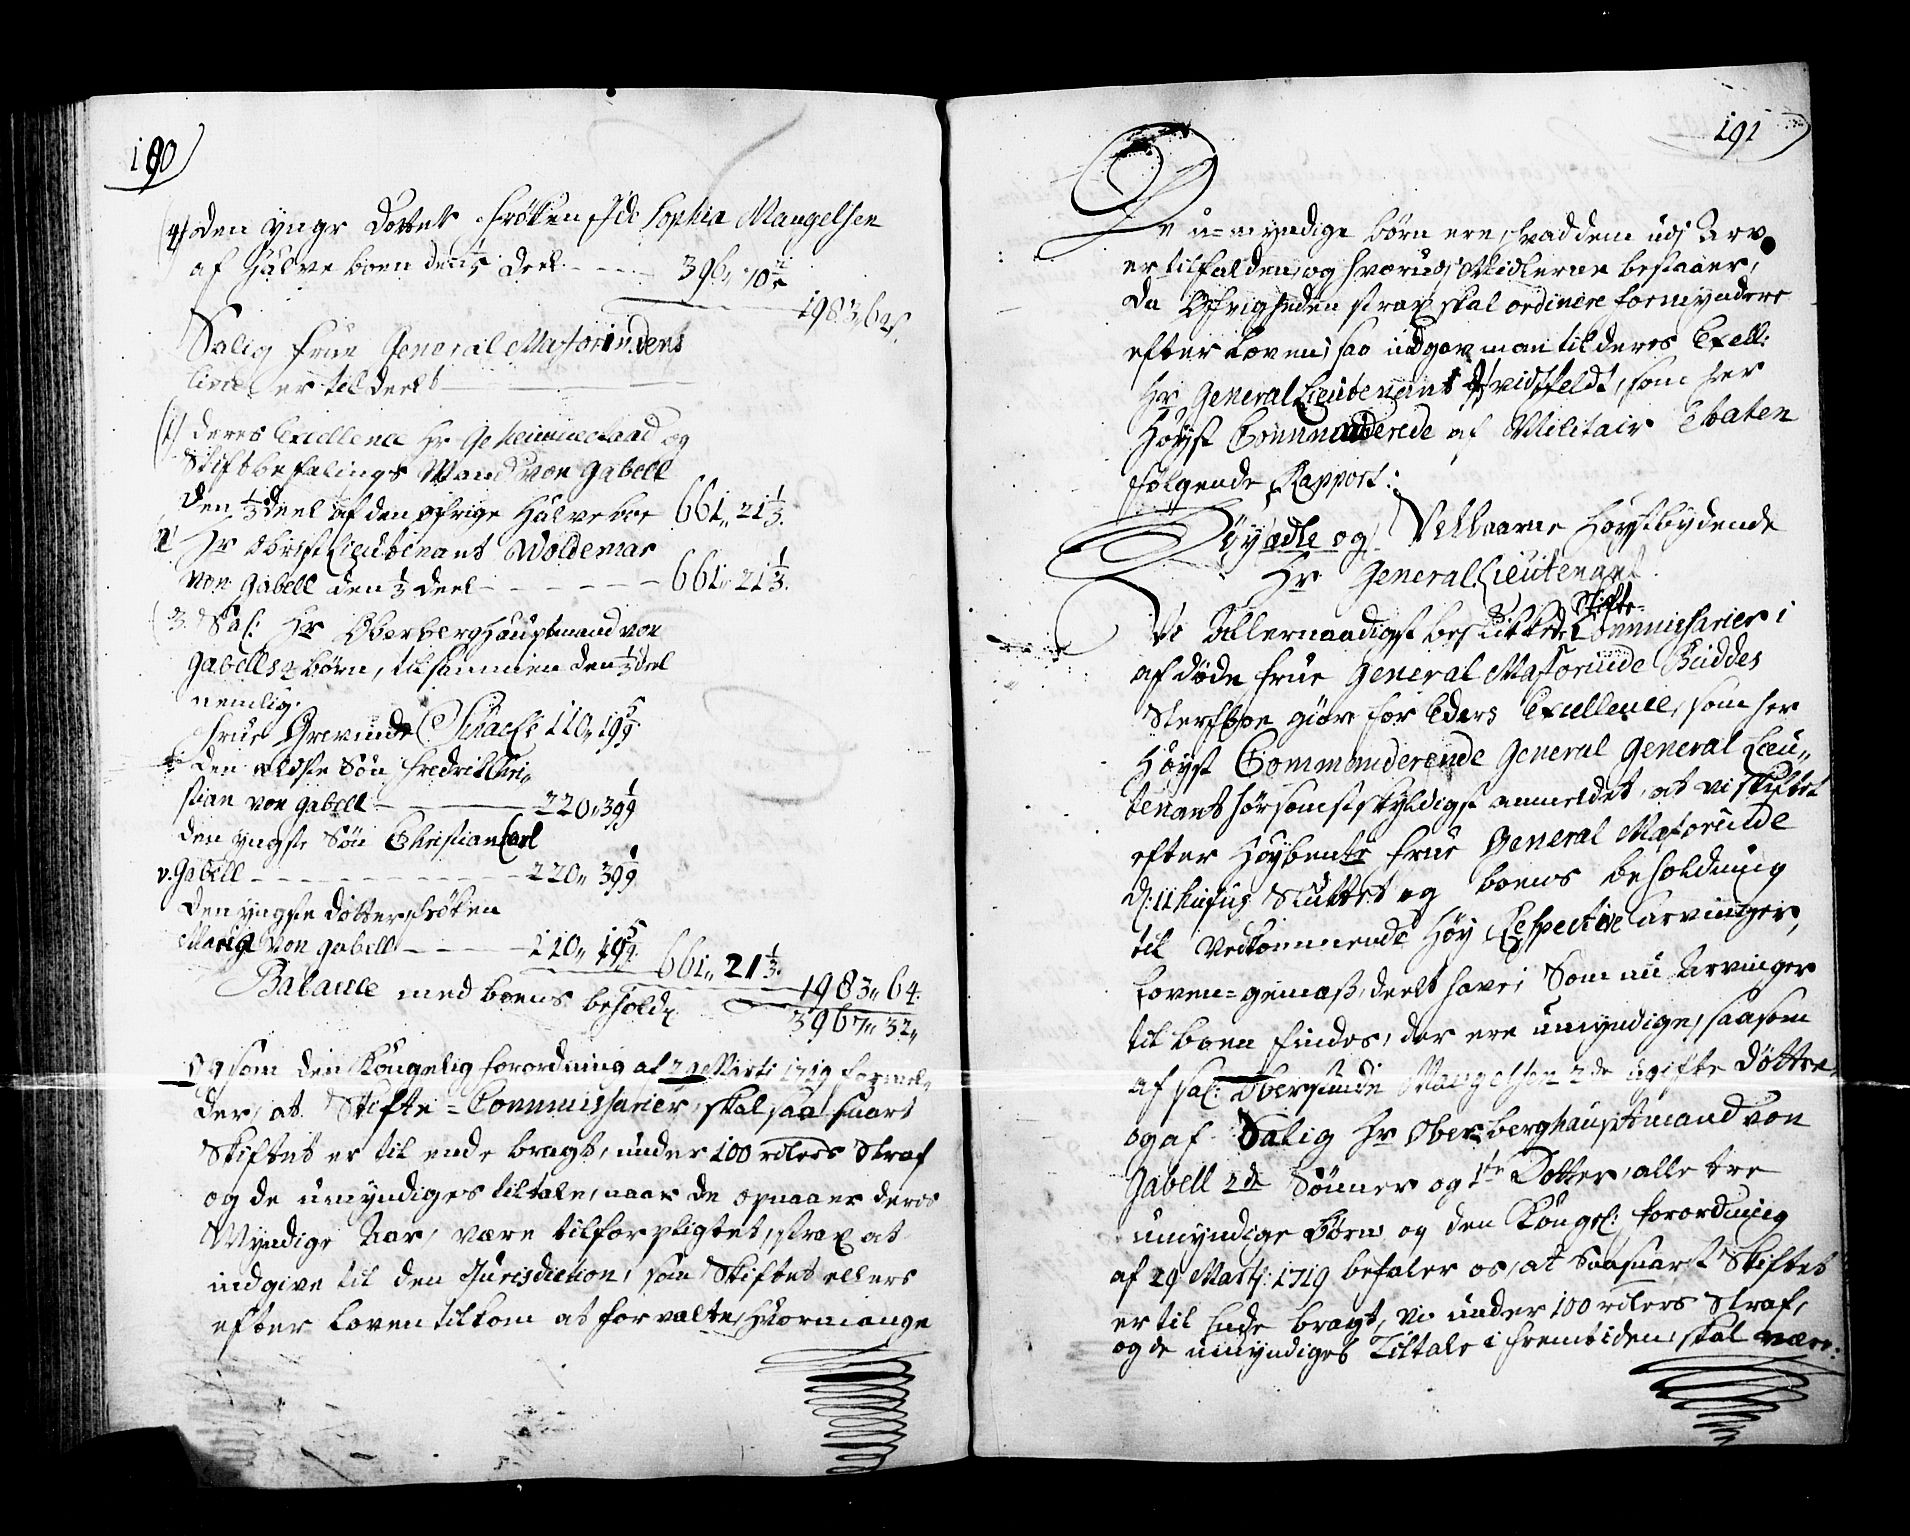 190
4) Den yngre Dotter Frøken Ide Sophia Mangelsen
af halve boen den 1/5 Deel - - - 396,, 70 2/5
1983,, 64.
Salig Frue General Majorindens
Linie er tildeelt
1) Deres Excellence Hr Geheimeraad og
Stiftbefalings Mand von Gabell
den 1/3 Deel af den øfrige halve boe 661,, 21 1/3.
2 Hr Obrist Lieutenant Woldemar
von Gabell den 1/3 deel - - - - - 661,, 21 1/3.
3. Sal: Hr Oberberghauptmand von
Gabells børn, tilsammen den 1/3 deel
nemlig.
Frue Grevinde Schack 110,, 19 5/9
den ældste Søn Fredrik Chri,,
stian von Gabell - 220,, 39 1/9
den yngste Søn Christian Carl
v. Gabell - - - - - - 220,, 39 1/9
den yngste dotter Frøken
Maria von Gabell - - - 110,, 19 5/9. 661,, 21 1/3.
1983,, 64.
Balance med boens behold: 3967,, 32,,
Og som den Kongelig forordning af 29 Marti 1719 formel,,
der, at Skifte-Commissarier, skal saa snart
Skiftet er til ende bragt, under 100 rdlers Straf
og de umyndiges tiltale, naar de opnaaer deres
Myndige Aar, være tilforpligtet, strax at
indgive til den Jurisdiction, som Skiftet ellers
efter Loven tilkom at forvalte, hvormange
191
De u-myndige børn ere, hvad dem udj Arv
er tilfalden, og hvorudj Midlerne bestaaer,
da Øfrigheden strax skal ordinere formyndere
efter Loven; saa indgav man til deres Excell:
Hr General Lieutenant Hvidtfeldt, som her
Høyst Commanderede af Militair Etaten
følgende Rapport:
Høyædle og Velbaarne Høystbydende
Hr General Lieutenant
Vi Allernaadigst beskikkede Skifte-Commissarier i
afdøde Frue General Majorinde Buddes
Sterfboe giøre for Eders Excellence, som her
Høyst Commanderende General General Lieu,,
tenant hørsomst skyldigst anmeldet, at vi Skiftet
efter Høybemte Frue General Majorinde
d: 11 hujus Sluttet og boens beholdning
til Vedkommende Høy Respective Arvinger,
Loven-gemæß, deelt have; Som nu Arvinger
til boen findes, der ere umyndige, saasom
af Sal: Obersinde Mangelsen 2de Ugifte Døttre,
og af Salig Hr Oberberghauptmand von
Gabell 2de Sønner og 1te Dotter, alle tre
umyndige Børn og den Kongel: forordning
af 29 Martj: 1719 befaler os, at Saasnart Skiftet
er til Ende bragt, vi under 100 rdlers Straf,
og de umyndiges Tiltale i fremtiden, skal være: